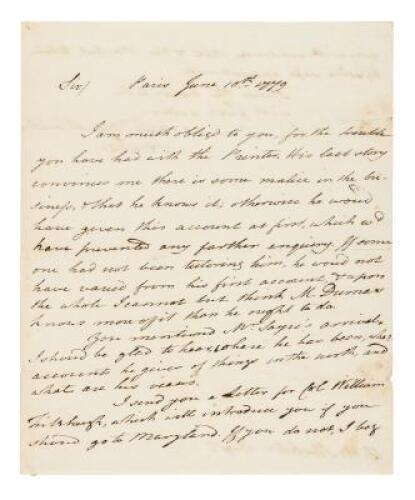 Sir/ Paris June 10th. 1779
I am much obliged to you, for the trouble
you have had with the Printer. His last story
convinces me there is some malice in the bu-
siness, & that he knows it; otherwise he would
have given this account at first, which wd
have prevented any farther enquiry. If some
one had not been tutoring him, he would not
have varied from his first account & upon
the whole I cannot but think M. Dumas
knows more of it than he ought to do.
You mentiond Mr. Sayre's arrival,
I shoud be glad to hear where he has been, what
accounts he gives of things in the north, and
what are his views.
I send you a Letter for Col. William
Fitzhugh, which will introduce you if you
shoud go to Maryland. If you do not, I beg